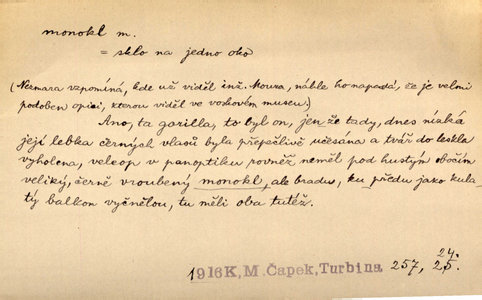 monokl m.
= sklo na jedno oko
(Nezmara vzpomíná, kde už viděl inž. Moura, náhle ho napadá, že je velmi
podoben opici, kterou viděl ve voskovém museu.)
Ano, ta gorilla, to byl on, jen že tady, dnes nízká
její lebka černých vlasů byla přepečlivě učesána a tvář do leskla
vyholena, velkop v panoptiku rovněž neměl pod hustým obočím
veliký, černě vroubený monokl, ale bradu, ku předu jako kula-
tý balkon vyčnělou, tu měli oba tutéž.
24.
1916K, M. Čapek, Turbina 257, 25.